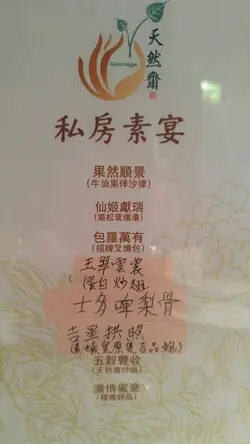 Green Veggie
天然齋
私房素宴
果然順景
(牛油果伴沙律)
仙姬獻瑞
(姬松茸燉湯)
包羅萬有
(招牌叉燒包)
玉翠雲裳
(蛋白炒翅
士多啤梨骨
吉星拱照
五穀豐收
(天然齋炒飯)
濃情蜜意
(精選甜品)